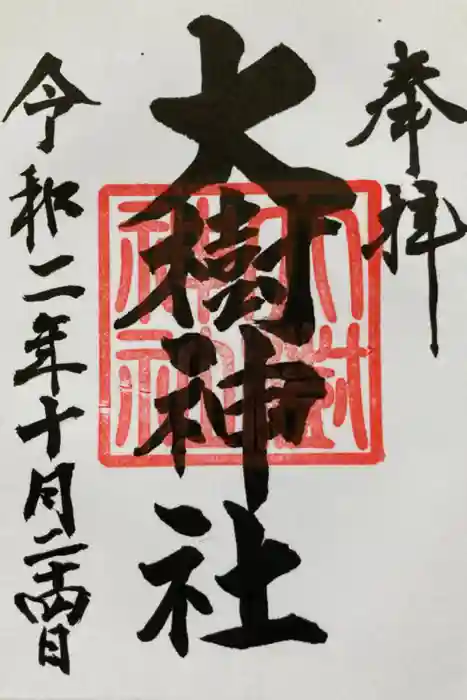 奉拝
大樹神社
令和二年十月二十四日
大樹神社